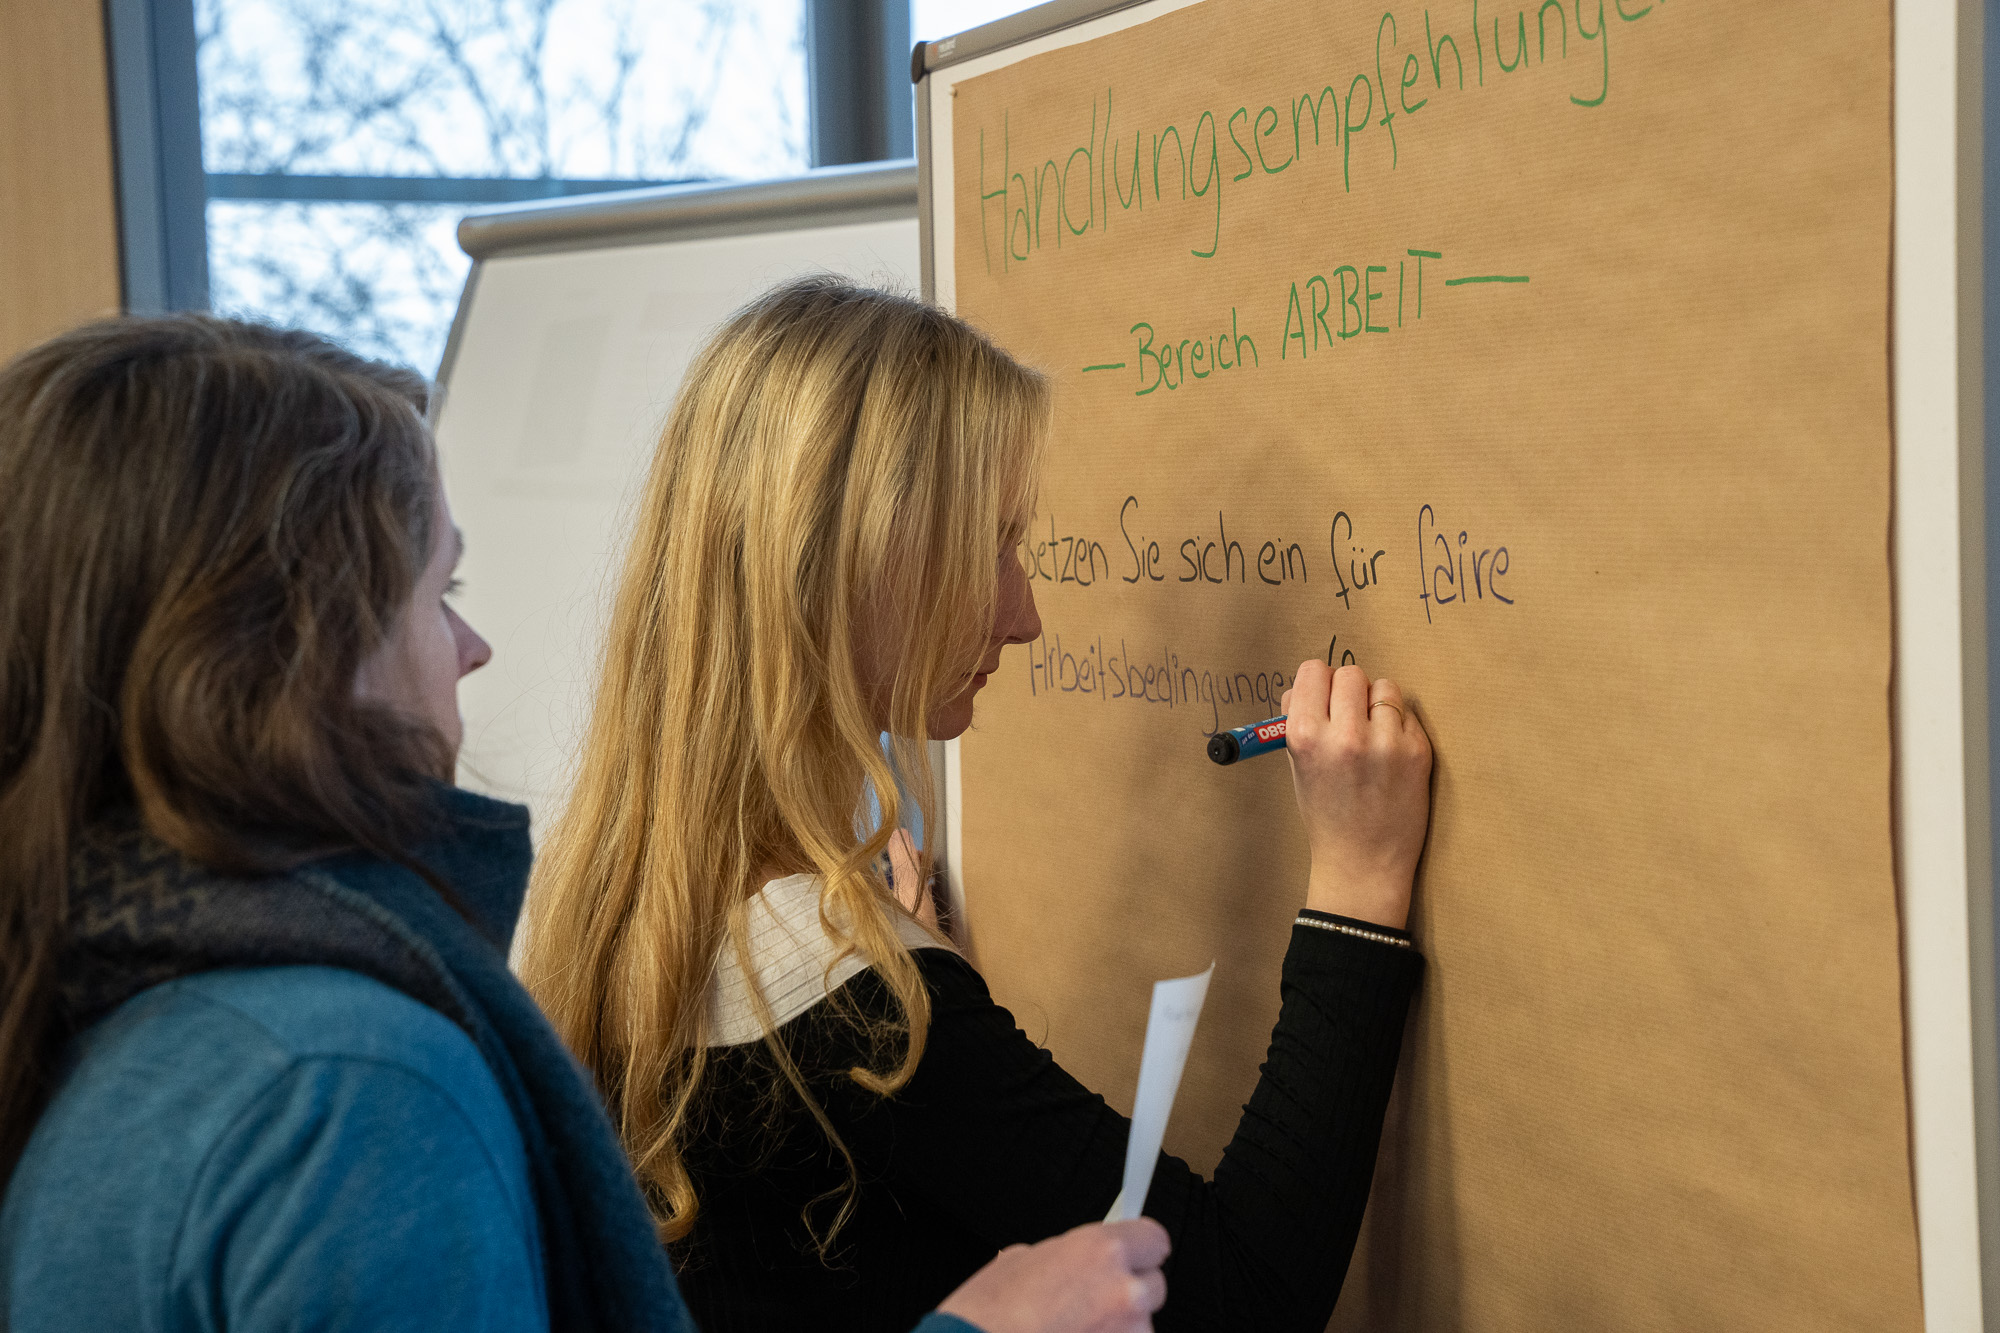 Handlungsempfehlunge
— Bereich ARBEIT —
Setzen Sie sich ein für faire
Arbeitsbedingungen
380